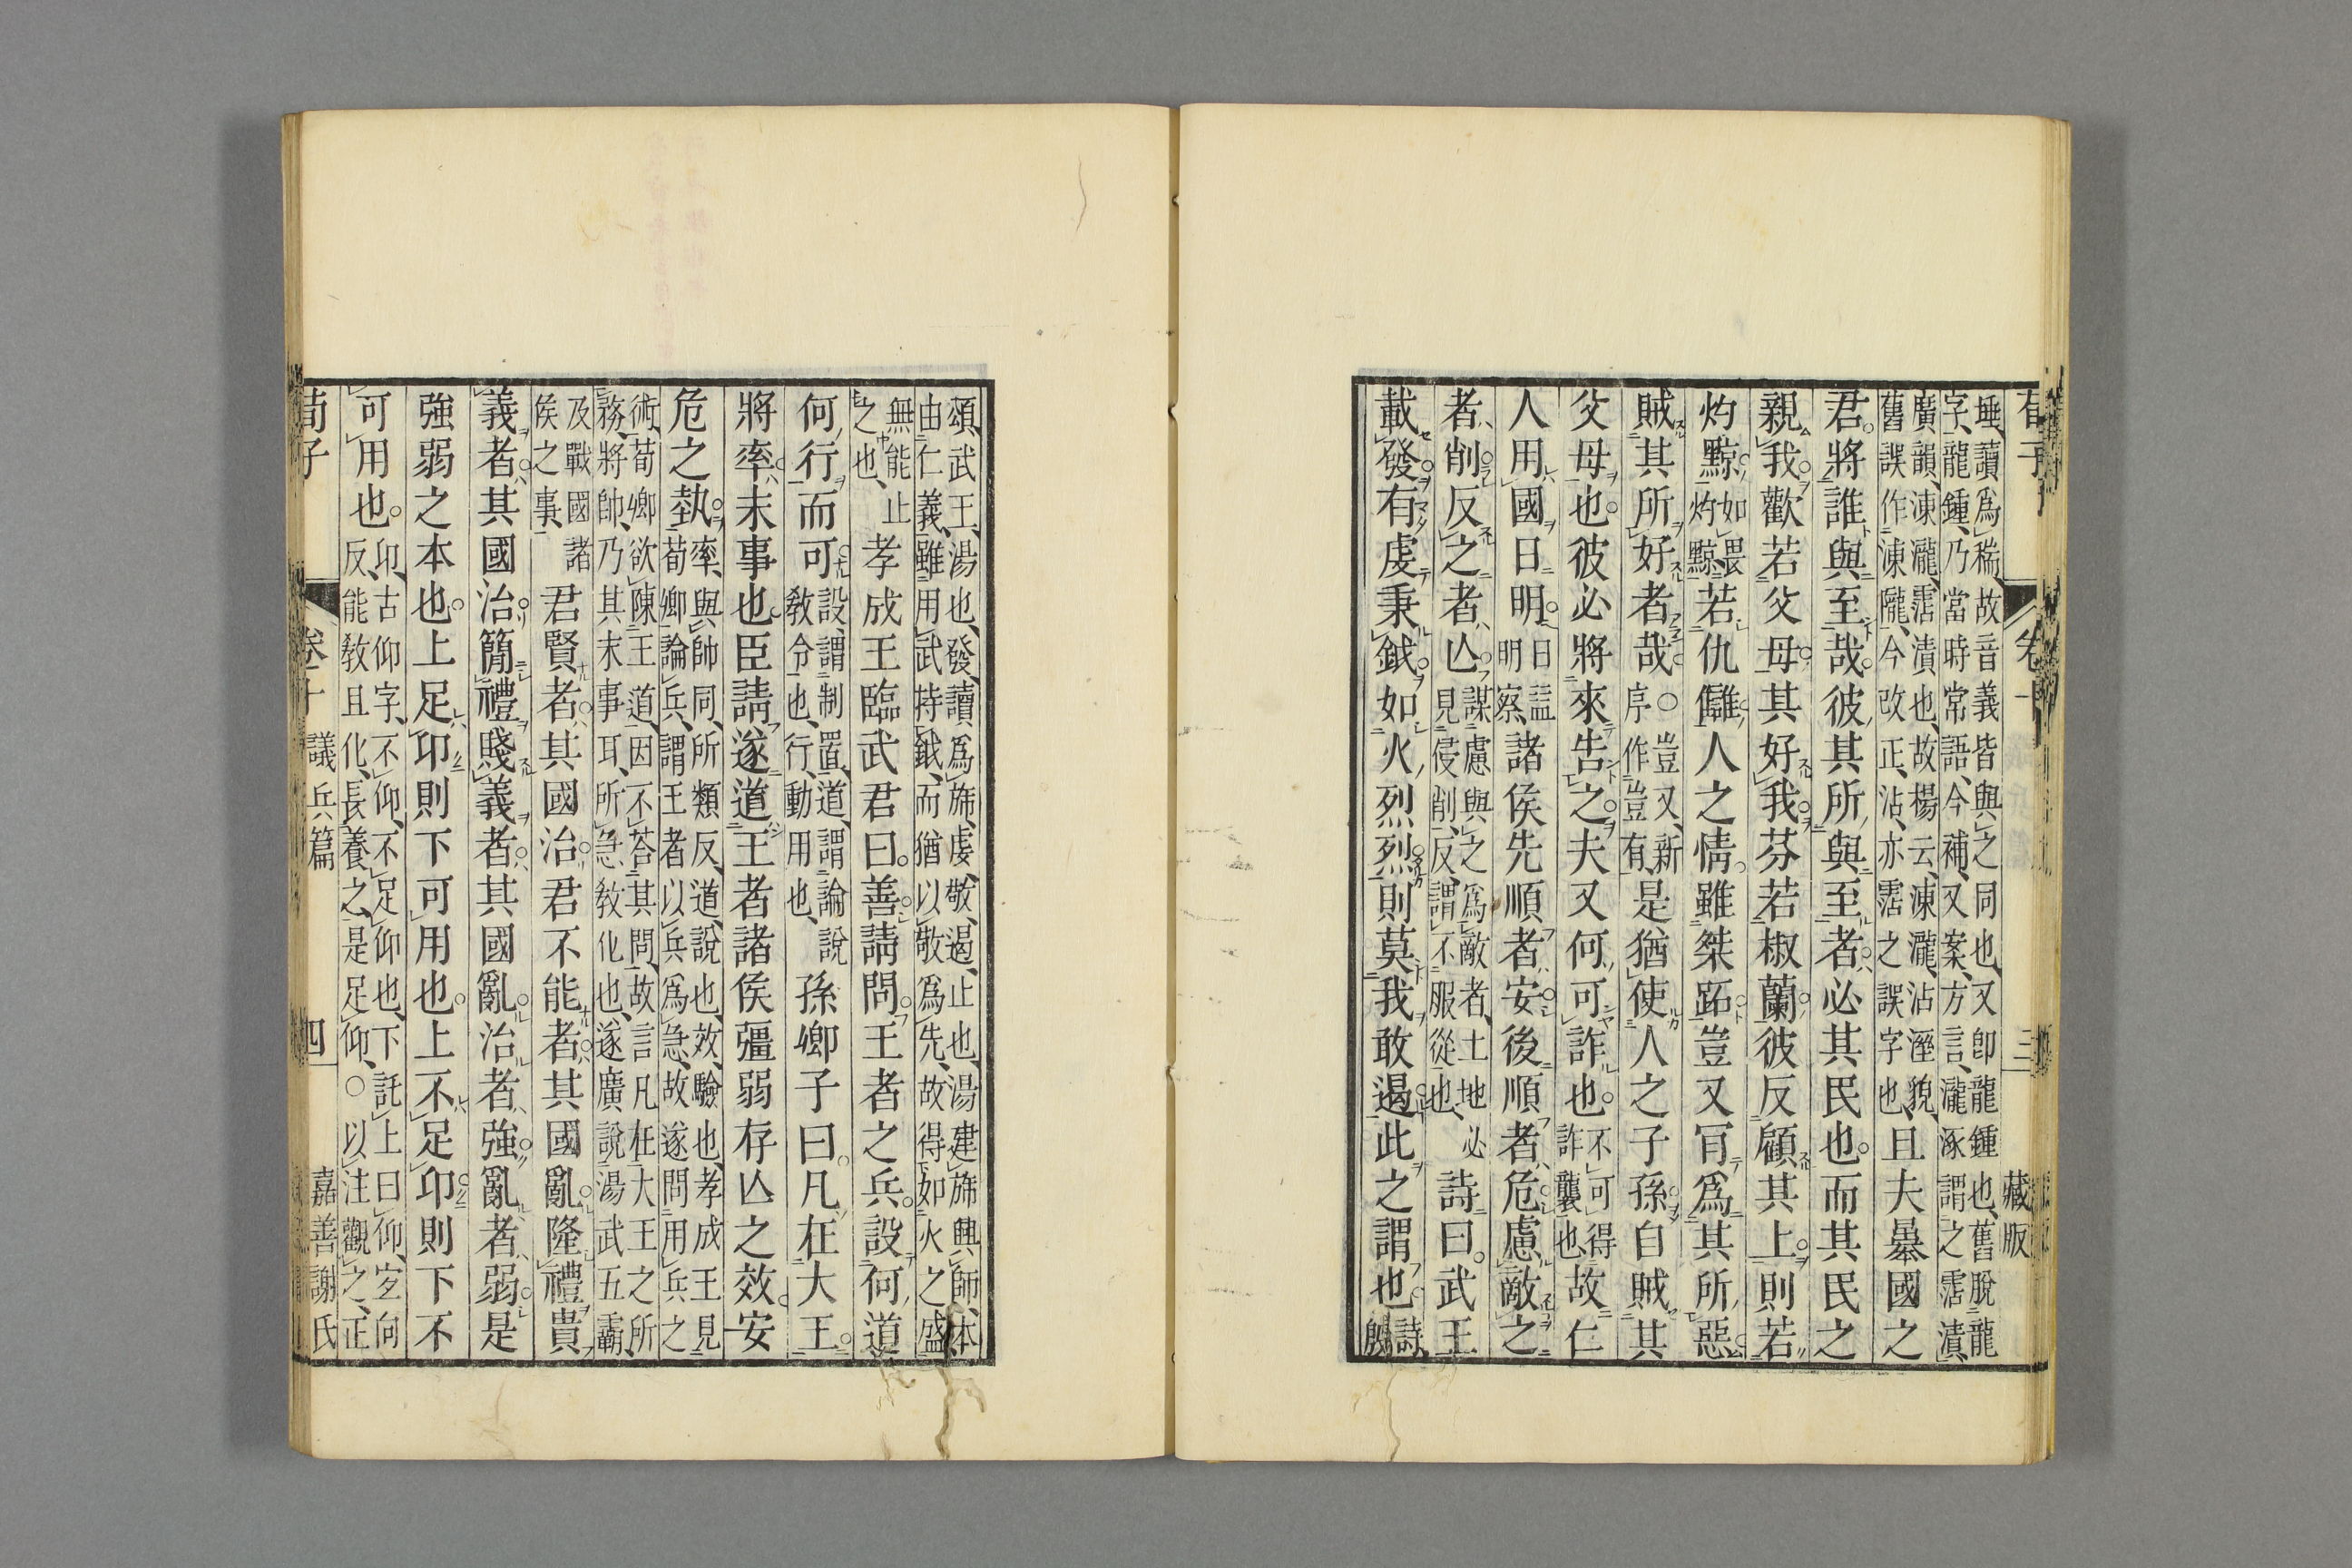 埵、讀爲稯、故音義皆與之同也、又卽龍鍾也、舊脫龍
字、龍鍾、乃當時常語、今補、又案、方言、瀧涿謂之霑漬、
廣韻、涷瀧、霑漬也、故楊云、涷瀧、沾溼貌、
舊誤作凍隴、今改正、沾、亦霑之誤字也、且夫暴國之
君。將誰與至哉。彼其所與至者。必其民也。而其民之
親我歡若父母。其好我芬若椒蘭。彼反顧其上。則若
灼黥。如畏灼黥、若仇讎。人之情。雖桀跖。豈又肯爲其所惡
賊其所好者哉。○豈又、新序作豈有、是猶使人之子孫自賊其
父母也。彼必將來告之。夫又何可詐也。不可得詐襲也、故仁
人用國日明。日益明察、諸侯先順者安。後順者危。慮敵之
者削。反之者亡。謀慮與之爲敵者、土地必見侵削、反、謂不服從也、詩曰。武王
載發。有虔秉鉞。如火烈烈。則莫我敢遏。此之謂也。詩、殷
藏版
三
頌、武王、湯也、發、讀爲旆、虔、敬、遏、止也、湯建旆興師、本
由仁義、雖用武持鉞、而猶以敬爲先、故得如火之盛、
無能止之也、孝成王臨武君曰。善請問。王者之兵。設何道
何行而可。設、謂制置、道、謂論說敎令也、行、動用也、孫卿子曰。凡在大王。
將率末事也。臣請遂道王者諸侯彊弱存亡之效。安
危之埶。率、與帥同、所類反、道、說也、效、驗也、孝成王見荀卿論兵、謂王者以兵爲急、故遂問用兵之
術、荀卿欲陳王道、因不答其問、故言凡在大王之所務、將帥、乃其末事耳、所急敎化也、遂廣說湯武五霸
及戰國諸侯之事、君賢者其國治。君不能者其國亂。隆禮貴
義者其國治。簡禮賤義者其國亂。治者強。亂者弱。是
強弱之本也。上足卬則下可用也。上不足卬則下不
可用也。卬、古仰字、不仰、不足仰也、下託上曰仰、宜向反、能敎且化、長養之、是足仰、○以注觀之、正
荀子
卷十
議兵篇
四
嘉善謝氏